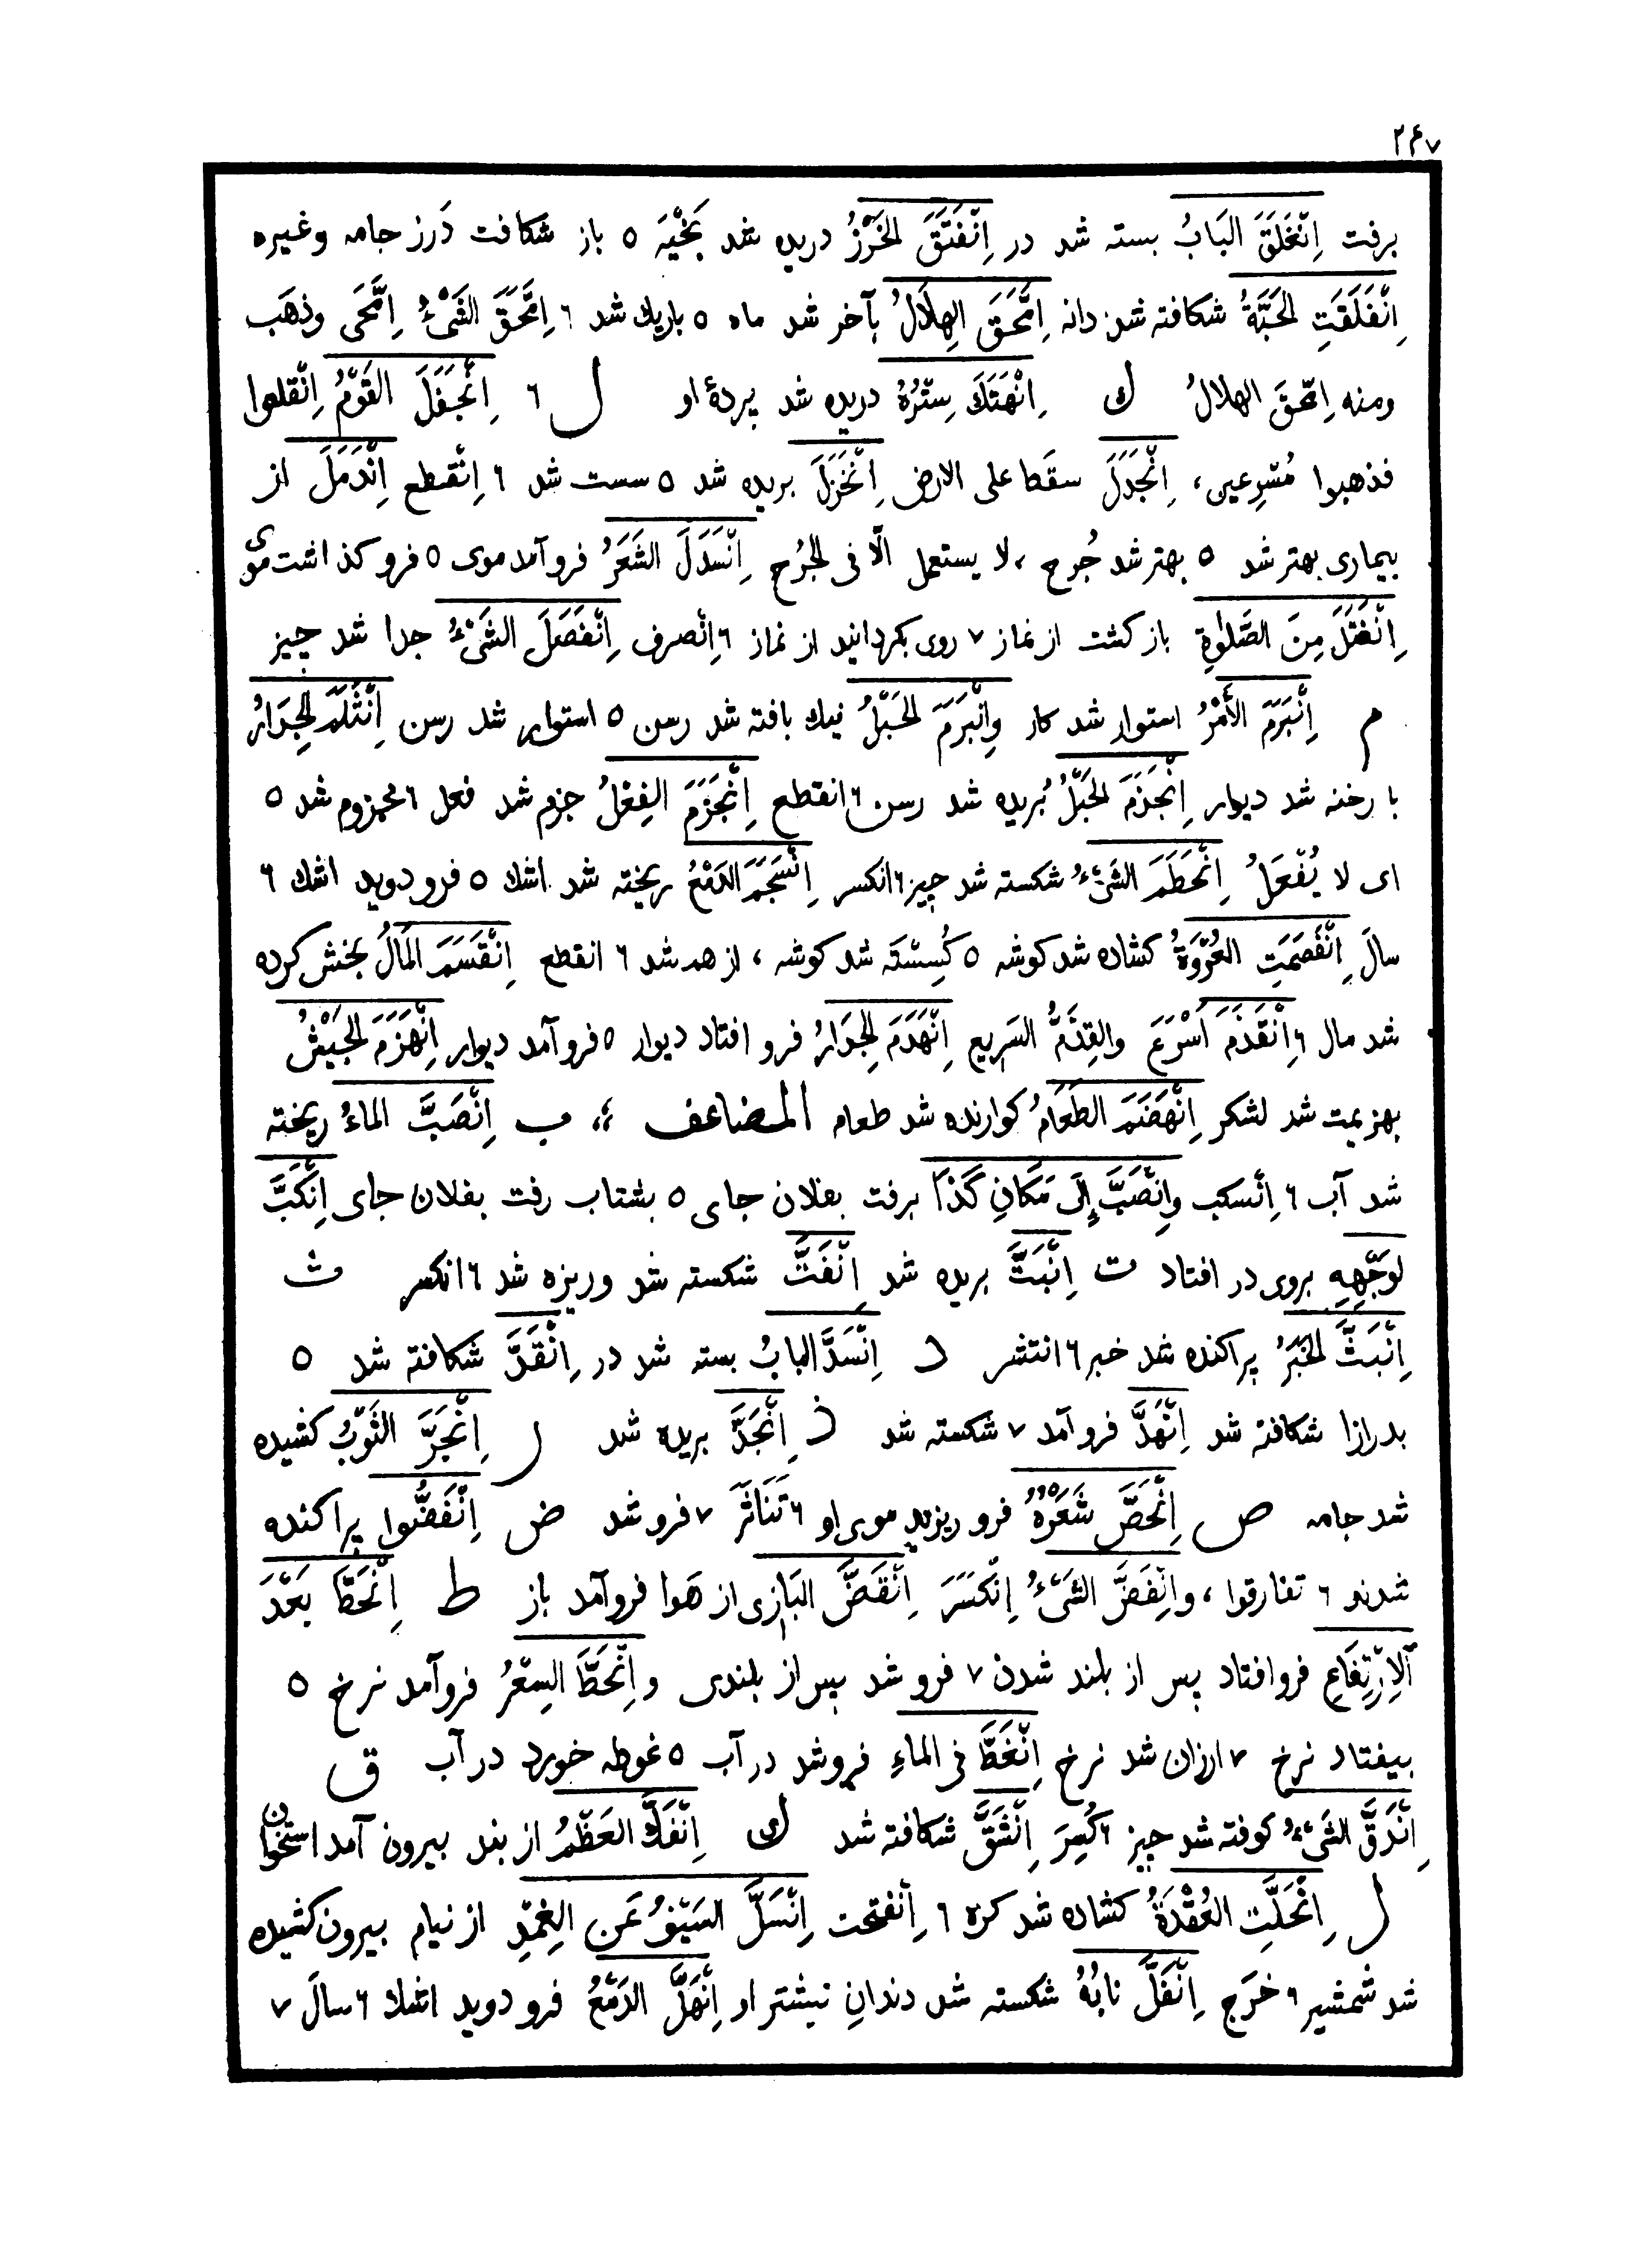 ۲۶۷
برفت اِنْغَلَقَ البَابُ بسته شد در اِنْفَتَقَ الخَرْزُ دریده شد بَخْیَه ٥ باز شکافت دَرز جامه وغیره
اِنْفَلَقَتِ الحَبَّةُ شکافته شد دانه اِمَّحَقَ الهِلَالُ بآخر شد ماه ٥ باریك شد ٦ اِمَّحَقَ الشَیْءُ اِمَّحَی وذهَب
ومنه اِمّحقَ الهلالُ ك اِنْهَتَكَ سِتْرُهُ دریده شد پردۀ او ل ٦ اِنْجَفَلَ القَوْمُ اِنْقلعوا
فذهبوا مُسْرِعین، اِنْجَدَلَ سقَط علی الارض اِنْخَزَلَ بریده شد ٥ سست شد ٦ اِنْقطع اِنْدَمَلَ از
بیماری بهتر شد ٥ بهتر شد جُرح، لا یستعمل الّا فی الجُرح اِنْسَدَلَ الشَعَرُ فرو آمد موی ٥ فرو کذاشت موی
اِنْفَتَلَ مِنَ الصَّلٰوةِ باز کشت از نماز ٧ روی بکردانید از نماز ٦ اِنْصرف اِنْفَصَلَ الشَیْءُ جدا شد چیز
م اِنْبَرَمَ الأَمْرُ استوار شد کار وانْبَرَمَ الحَبْلُ نیك بافته شد رسن ٥ استوار شد رسن اِنْثَلَمَ الجِدَارُ
با رخنه شد دیوار اِنْجَذَمَ الحَبْلُ بُریده شد رسن ٦ انقطع اِنْجَزَمَ الفِعْلُ جزم شد فعل ٦ مجزوم شد ٥
ای لا یُفْعَلُ اِنْحَطَمَ الشَیْءُ شکسته شد چیز ٦ انکسر اِنْسَجَمَ الدَمْعُ ریخته شد اشك ٥ فرو دوید اشك ٦
سالَ اِنْفَصَمَتِ العُرْوَةُ کشاده شد کوشه ٥ کُسِسْتَه شد کوشه، از هم شد ٦ انقطع اِنْقَسَمَ المَالُ بخش کرده
شد مال ٦ اِنْقَذَمَ اَسْرَعَ والقِذَمُّ السَریع اِنْهَدَمَ الجِدَارُ فرو افتاد دیوار ٥ فرو آمد دیوار اِنْهَزَمَ الجَیْشُ
بهزیمت شد لشکر اِنْهَضَمَ الطَعَامُ کوارنده شد طعام المضاعف ب اِنْصَبَّ الماءُ ریخته
شد آب ٦ اِنْسکب وانْصَبَّ اِلَی مَکَانٍ کَذَا برفت بفلان جای ٥ بشتاب رفت بفلان جای اِنْکَبَّ
لوَجْهِهِ بروی در افتاد ت اِنْبَتَّ بریده شد اِنْفَتَّ شکسته شد وریزه شد ٦ انکسر ث
اِنْبَثَّ الخَبَرُ پراکنده شد خبر ٦ انتشر د اِنْسَدَّ البابُ بسته شد در اِنْقَدَّ شکافته شد ٥
بدرازا شکافته شد اِنْهَدَّ فرو آمد ٧ شکسته شد ذ اِنْجَذَّ بریده شد ر اِنْجَرَّ الثَوْبُ کشیده
شد جامه ص اِنْحَصَّ شَعَرُهُ فرو ریزید موی او ٦ تَنَاثَرَ ٧ فرو شد ض اِنْفَضُّوا پراکنده
شدند ٦ تفارقوا، وانْفَضَّ الشَیْءُ اِنْکَسَرَ اِنْقَضَّ البَازِی از هَوا فروآمد باز ط اِنْحَطَّ بَعْدَ
اَلاِرْتِفَاعِ فروافتاد پس از بلند شدن ٧ فرو شد پس از بلندی و اِنْحَطَّ السِعْرُ فروآمد نرخ ٥
بیفتاد نرخ ٧ ارزان شد نرخ اِنْغَطَّ فی الماءِ فروشد در آب ٥ غوطه خورد در آب ق
اِنْدَقَّ الشَیْءُ کوفته شد چیز ٦ کُسِرَ اِنْشَقَّ شکافته شد ك اِنْفَكَّ العَظْمُ از بند بیرون آمد استخوان
ل اِنْحَلَّتِ العُقْدَةُ کشاده شد کره ٦ اِنْفتحت اِنْسَلَّ السَیْفُ عَنِ الغِمْدِ از نیام بیرون کشیده
شد شمشیر ٦ خَرَج اِنْفَلَّ نابُهُ شکسته شد دندانِ نیشتر او اِنْهَلَّ الدَمْعُ فرو دوید اشك ٦ سالَ ٧